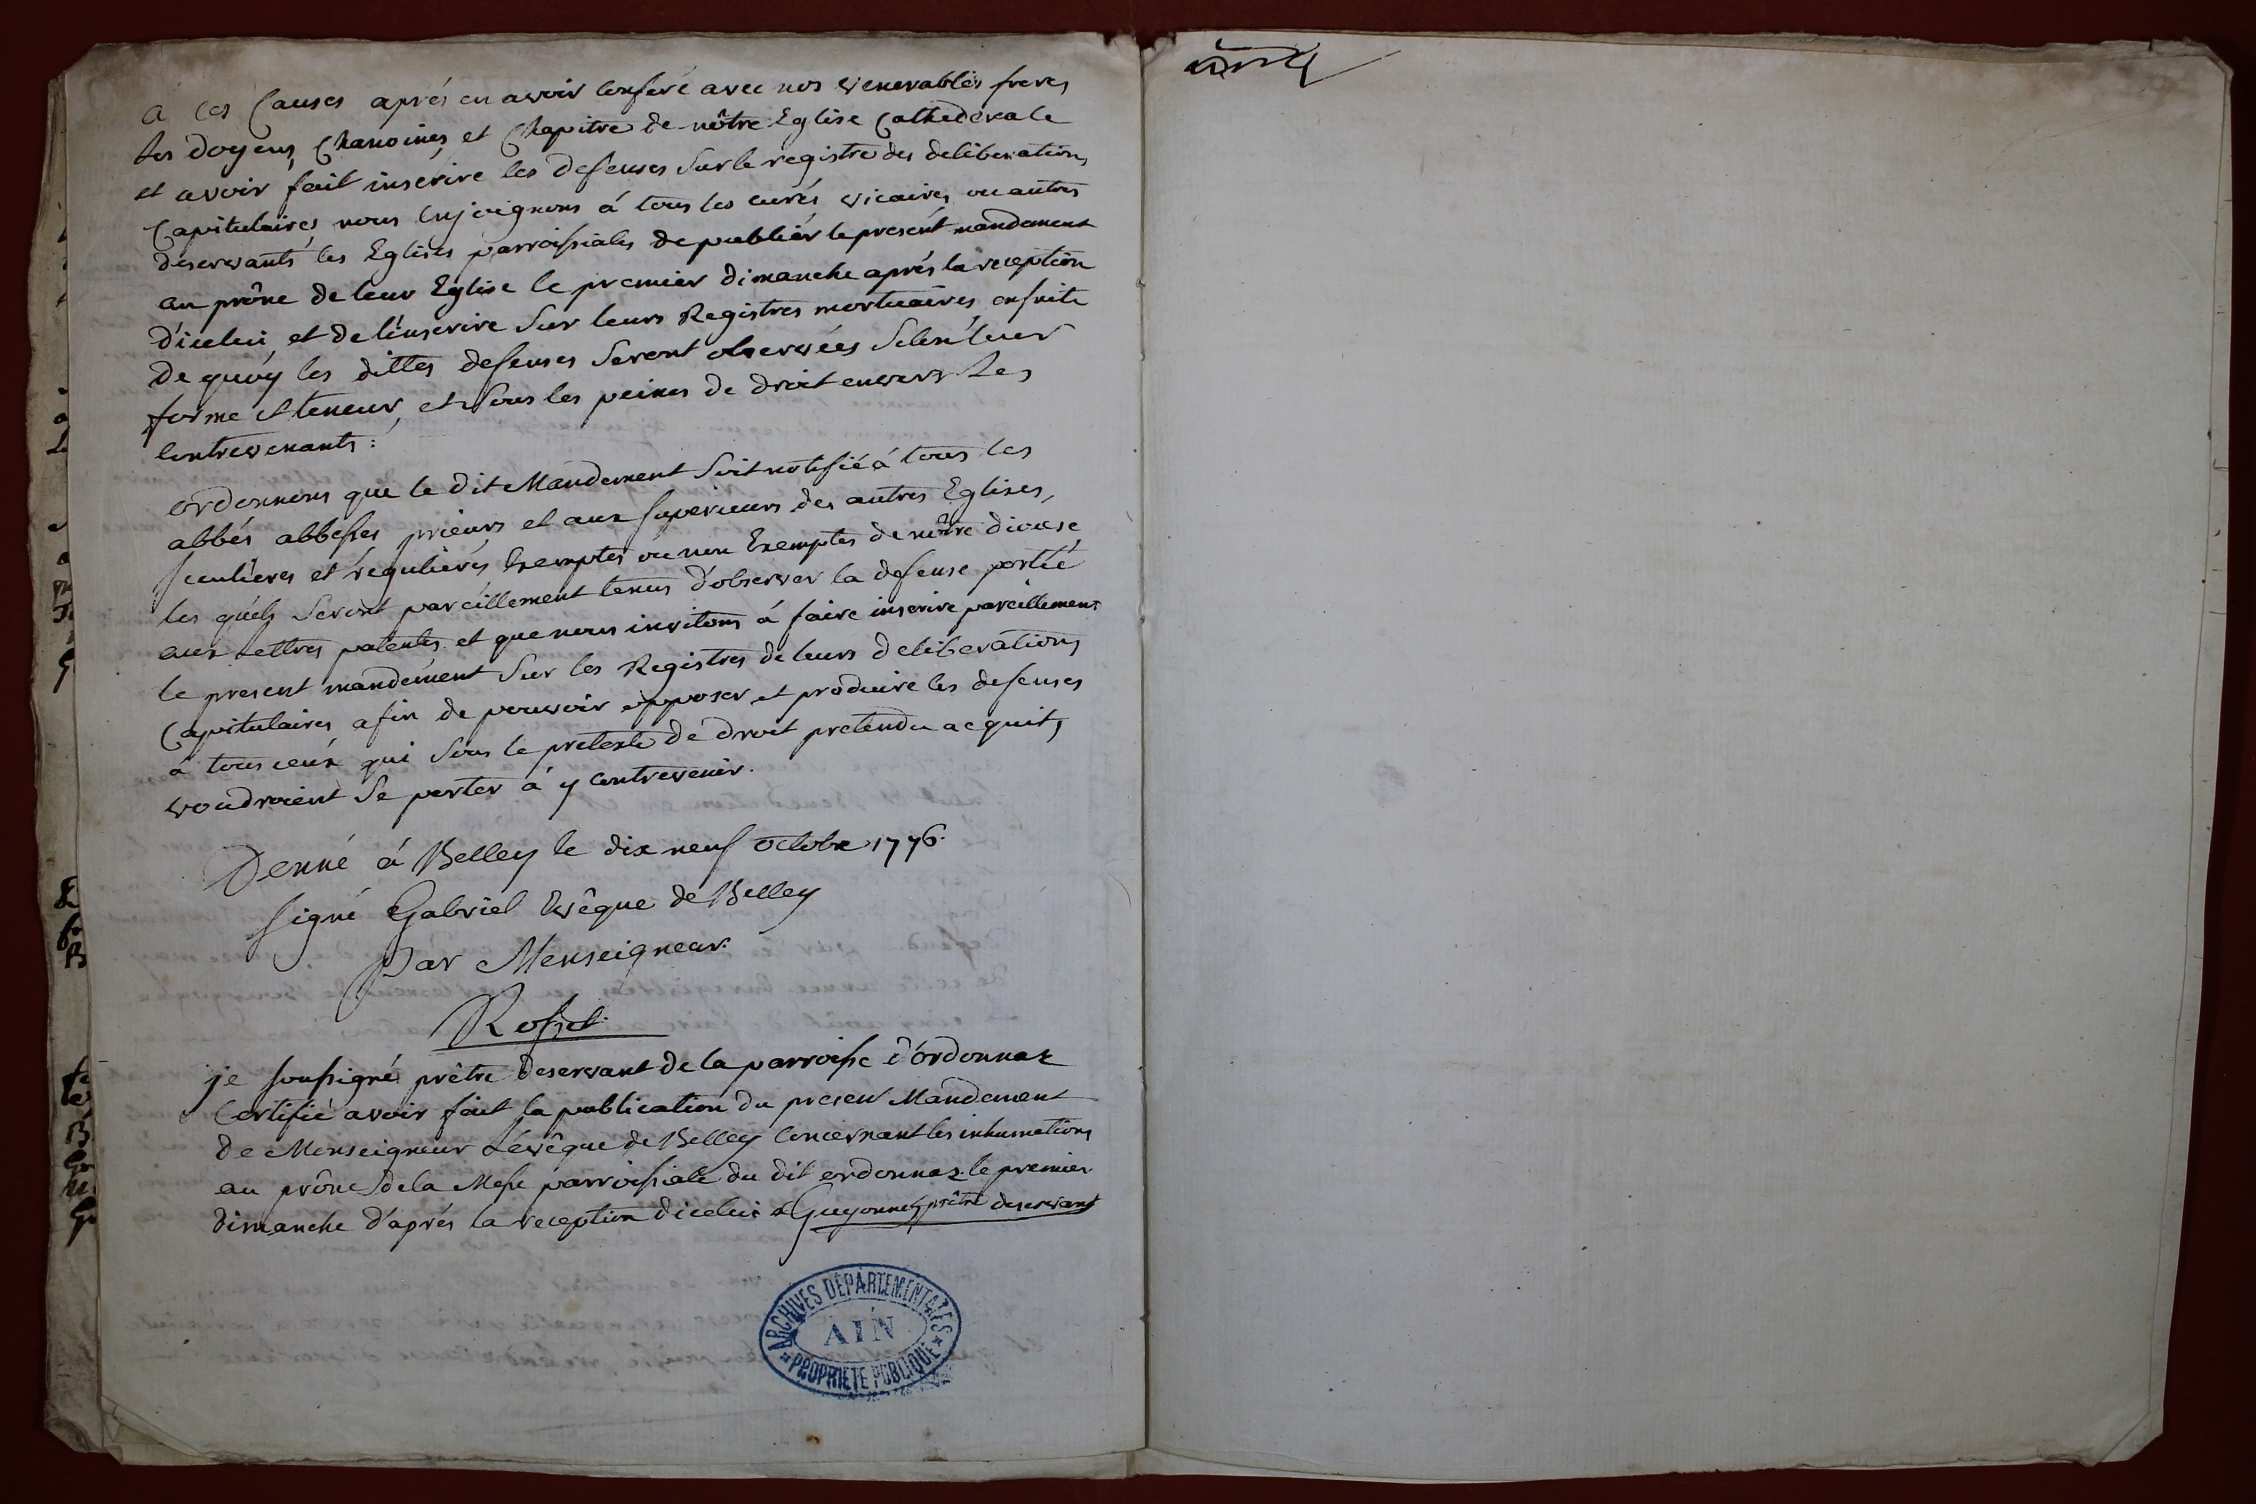 a ces Causes aprés en avoir conferé avec nos venerables freres
les doyens, Chanoines et Chapitre de nôtre Eglise Cathederale
et avoir fait inscrire les defenses sur le registre des deliberations
Capitulaires nous Enjoignons á tous les curés vicaires ou autres
deservants les Eglises parroissiales de publiér le present mandement
au prône de leur Eglise le premier dimanche aprés la reception
d'icelui et de l'inscrire sur leurs Registres mortuaires, ensuite
de quoy les dittes defenses seront observées selon leur
forme et teneur, et sous les peines de droit envers les
contrevenants:
ordonnons que le dit Mandement soit notifié á tous les
abbés abbesses prieurs et aux superieurs des autres Eglises,
seculieres et régulieres, Exemptes ou non Exemptes de nôtre diocese,
les quels seront pareillement tenus d'observer la defense portée
aux Lettres patentes et que nous invitons á faire inscrire pareillement
le present mandement sur les Registres de leurs deliberations
Capitulaires afin de pouvoir opposer et produire les defenses
a tous ceux qui sous le pretexte de droit pretendu acquit,
voudroient se porter á y contrevenir.
Donné á Belley le dix neuf octobre 1776.
signé Gabriel Evêque de Belley
Par Monseigneur.
Rosset.
je soussigné prêtre deservant de la parroisse d'ordonnaz
Certifie avoir fait la publication du present Mandement
de Monseigneur L'evêque de Belley Concernant les inhumations
au prône de la Messe parroissiale du dit ordonnaz le premier
dimanche d'aprés la reception dicelui Guyonnet prêtre deservant
ARCHIVES DÉPARTEMENTALES
AIN
* PROPRIÉTÉ PUBLIQUE *